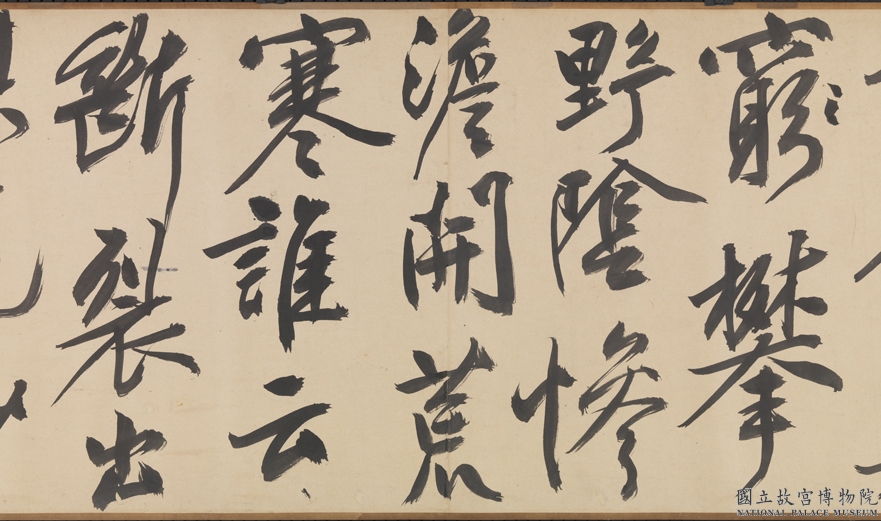 窮攀
野陰慘
澹開荒
寒誰云
斷裂出
國立故宮博物院
NATIONAL PALACE MUSEUM